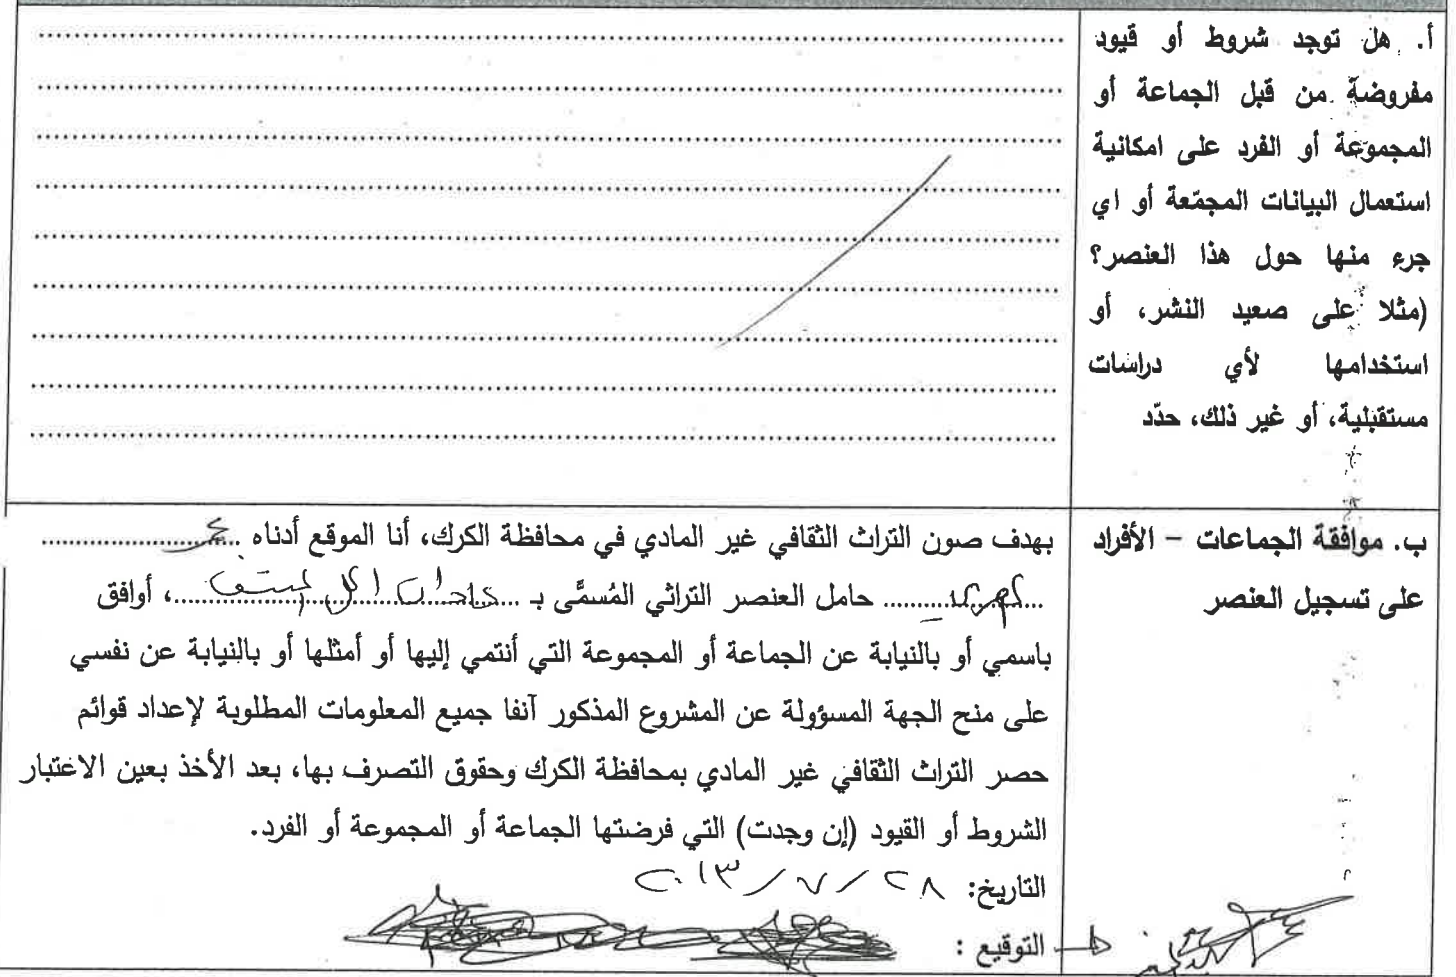 أ. هل توجد شروط أو قيود
مفروضة من قبل الجماعة أو
المجموعة أو الفرد على امكانية
استعمال البيانات المجمّعة أو اي
جرء منها حول هذا العنصر؟
(مثلا على صعيد النشر، أو
استخدامها لأي دراسات
مستقبلية، أو غير ذلك، حدّد
ب. موافقة الجماعات – الأفراد
على تسجيل العنصر
بهدف صون التراث الثقافي غير المادي في محافظة الكرك، أنا الموقع أدناه
حامل العنصر التراثي المُسمَّى بـ ، أوافق
باسمي أو بالنيابة عن الجماعة أو المجموعة التي أنتمي إليها أو أمثلها أو بالنيابة عن نفسي
على منح الجهة المسؤولة عن المشروع المذكور آنفا جميع المعلومات المطلوبة لإعداد قوائم
حصر التراث الثقافي غير المادي بمحافظة الكرك وحقوق التصرف بها، بعد الأخذ بعين الاعتبار
الشروط أو القيود (إن وجدت) التي فرضتها الجماعة أو المجموعة أو الفرد.
التاريخ: ٢٨ / ٧ / ٢٠١٣
التوقيع :